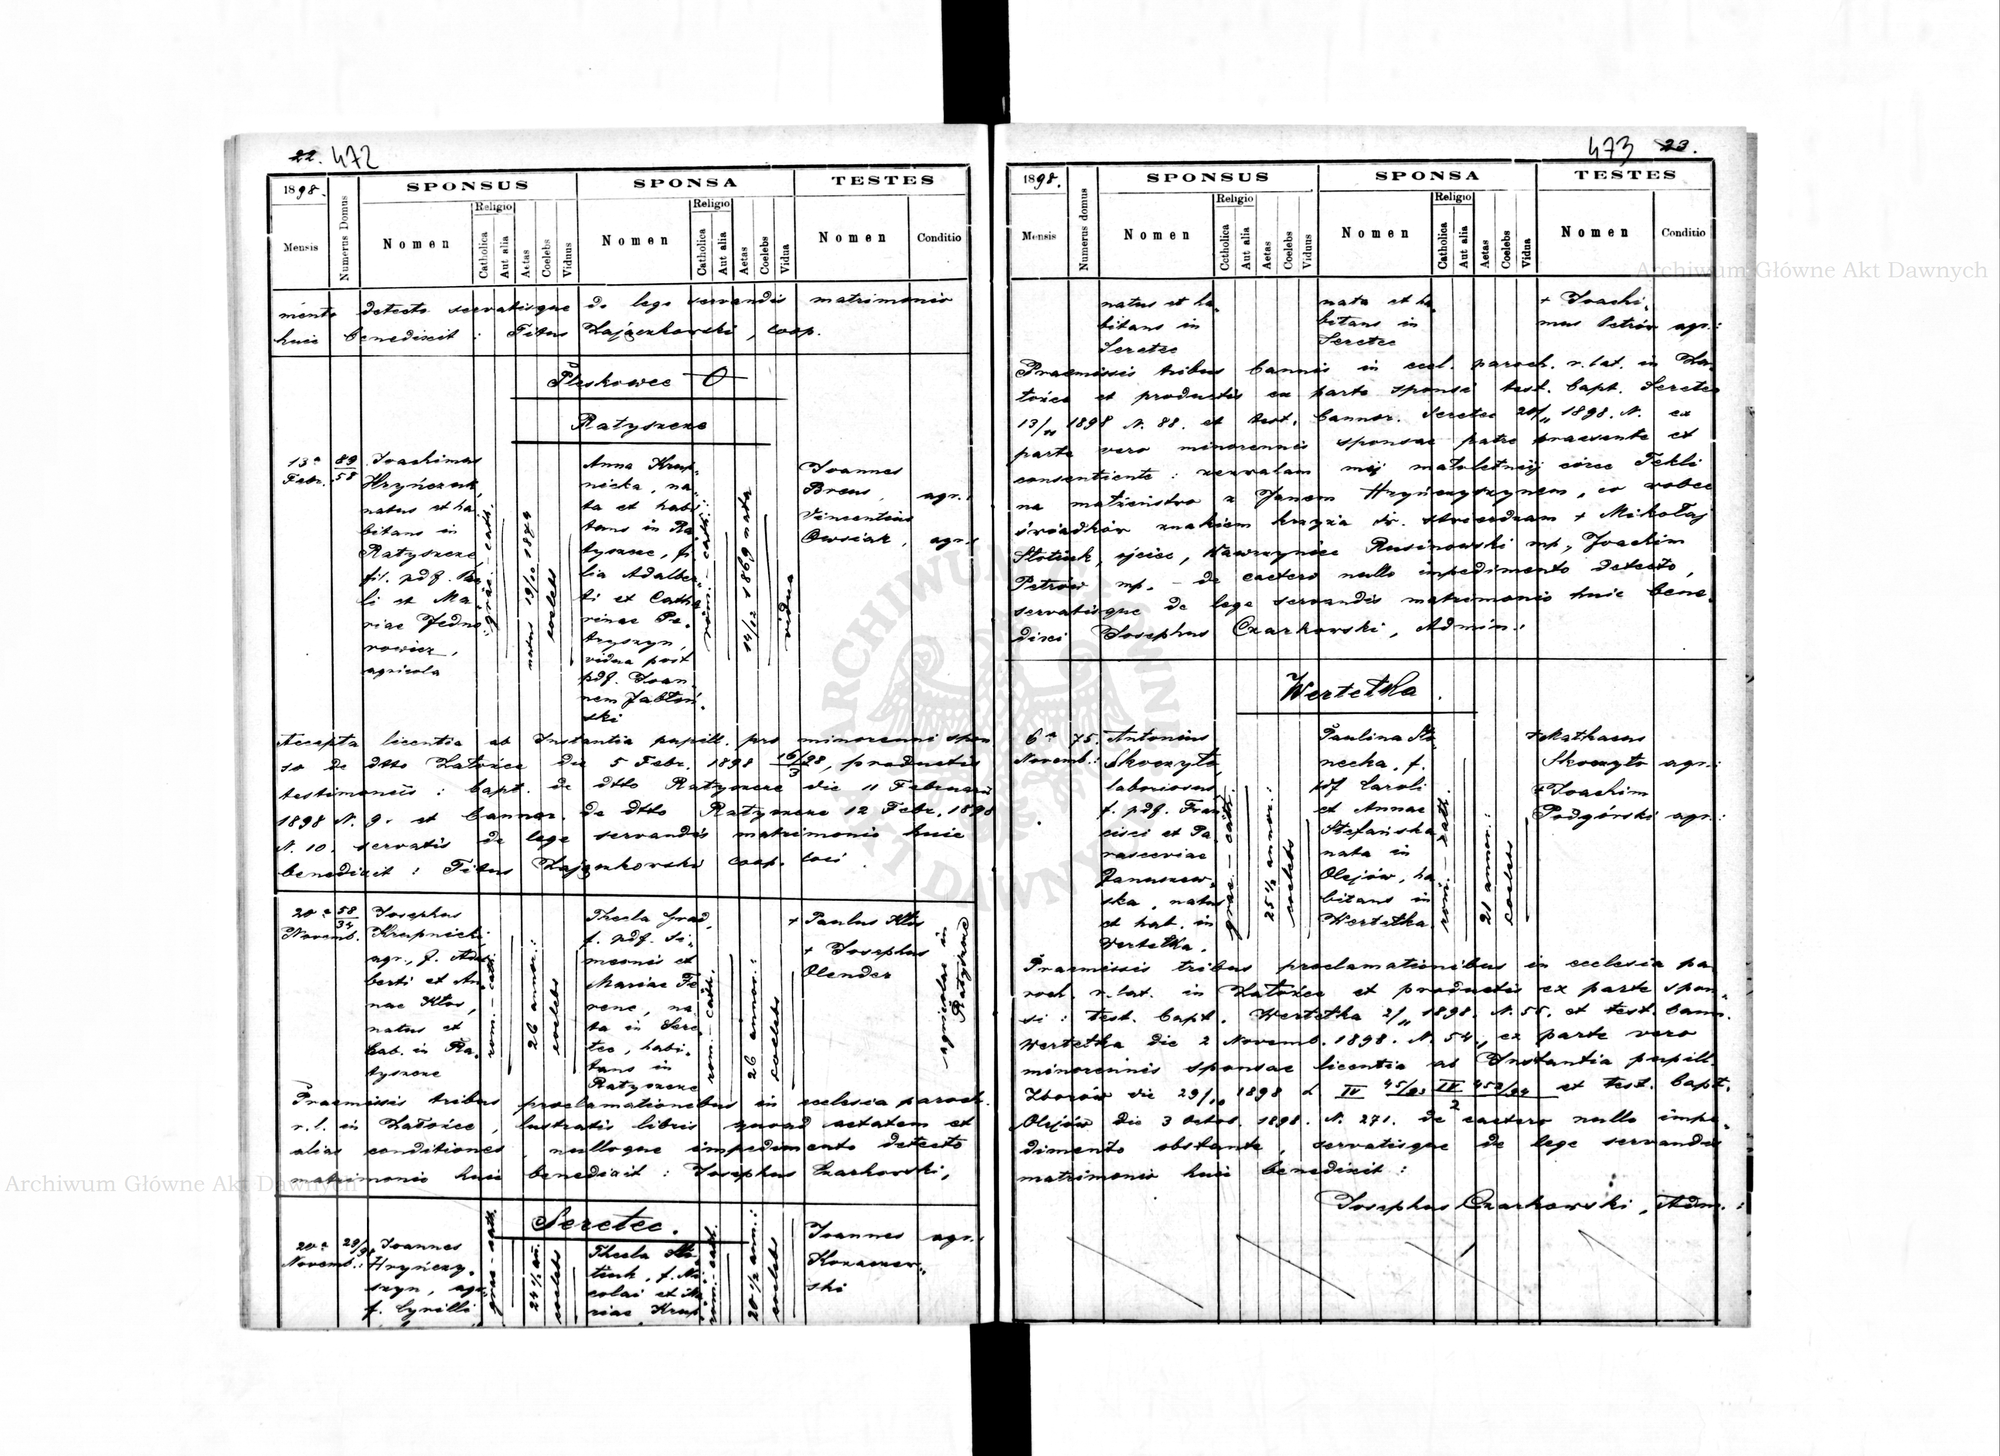 22. 472
1898.
Mensis
Numerus Domus
SPONSUS
SPONSA
TESTES
Nomen
Religio
Catholica
Aut alia
Aetas
Coelebs
Viduus
Nomen
Religio
Catholica
Aut alia
Aetas
Coelebs
Vidua
Nomen
Conditio
mento detecto servatisque de lege servandis matrimonio
huic benedixit: Titus Zajączkowski, coop.
Pleskowce
Ratyszcze
13a
Febr.
89
58
Joachimus
Hryńczuk,
natus et ha
bitans in
Ratyszcze
fil. pdf. Pa
li et Ma
riae Fedno
rowicz,
agricola
graec.-cath.
natus 19/10 1874
coelebs
Anna Krup
nicka, na
ta et habi
tans in Ra
tyszcze, fi
lia Adalber
ti et Catha
rinae Pe
tryszyn,
vidua post
pdf. Joan
nem Jabłoń
ski
rom.-cath.
14/12 1869 nata
vidua
Joannes
Braus, agr.
Vincentius
Owsiak, agr.
Accepta licentia ab Instantia pupill. pro minorenni spon
so de dtto Załoźce die 5 Febr. 1898 16/98/3, productis
testimoniis: bapt. de dtto Ratyszcze die 11 Februarii
1898 N. 9. et bannor. de dtto Ratyszcze 12 Febr. 1898
N. 10. servatis de lege servandis matrimonio huic
benedixit: Titus Zajączkowski coop. loci.
20a
Novemb.
58
34
Josephus
Krupnicki,
agr., f. Adal
berti et An
nae Kłos,
natus et
hab. in Ra
tyszcze
rom.-cath.
26 annor.:
coelebs
Thecla Grad,
f. pdf. Si
meonis et
Mariae Fe
renc, na
ta in Sere
tec, habi
tans in
Ratyszcze
rom.-cath.
26 annor.:
coelebs
+ Paulus Kłos
+ Josephus
Olender
agricolae in
Ratyszcze
Praemissis tribus proclamationibus in ecclesia paroch.
r.l. in Załoźce, lustratis libris quoad aetatem et
alias conditiones, nulloque impedimento detecto
matrimonio huic benedixit: Josephus Czarkowski,
Seretec.
20a
Novemb.:
Joannes
Hryńczy
szyn, agr.
f. Cyrilli
graec-cath.
24 1/2 an.
coelebs
Thecla Sło
tiuk, f. Ni
colai et Ma
riae Krup
rom. cath.
20 1/2 ann.:
coelebs
Joannes agr.
Kozaczew
ski
473 23.
1898.
Mensis
Numerus domus
SPONSUS
SPONSA
TESTES
Nomen
Religio
Cctholica
Aut alia
Aetas
Coelebs
Viduus
Nomen
Religio
Catholica
Aut alia
Aetas
Coelebs
Vidua
Nomen
Conditio
natus et ha
bitans in
Seretec
nata et ha
bitans in
Seretec
+ Joachi
mus Petrów agr.:
Praemissis tribus bannis in eccl. paroch. r. lat. in Za
łoźce et productis ex parte sponsi test. bapt. Seretec
13/11 1898 N. 88. et test. bannor. Seretec 20/11 1898. N. ex
parte vero minorennis sponsae patre praesente et
consentiente: zezwalam mej małoletniej córce Tekli
na małżeństwo z Janem Hryńczyszynem, co wobec
świadków znakiem krzyża św. stwierdzam + Mikołaj
Słotiuk, ojciec, Wawrzyniec Rusinowski mp., Joachim
Petrów mp. - de caetero nullo impedimento detecto,
servatisque de lege servandis matrimonio huic bene
dixi Josephus Czarkowski, Admin.:
Wertełka.
6a
Novemb.:
75.
Antonius
Skoczyło,
laboriosus,
f. pdf. Fran
cisci et Pa
rasceviae
Januszew
ska, natus
et hab. in
Wertełka.
graec.-cath.
25 1/2 annor.:
coelebs
Paulina Sło
necka, f.
pdf Caroli
et Annae
Stefańska
nata in
Olejów, ha
bitans in
Wertełka
rom.-cath.
21 annor.:
coelebs
+ Mathaeus
Skoczyło agr.:
+ Joachim
Podgórski agr.:
Praemissis tribus proclamationibus in ecclesia pa
roch. r. lat. in Załoźce et productis ex parte spon
si: test. bapt. Wertełka 2/11 1898. N. 55. et test. bann.
Wertełka die 2 Novemb. 1898. N. 54., ex parte vero
minorennis sponsae licentia ab Instantia pupill.
Zborów die 29/10 1898 et test. bapt.
Olejów die 3 Octob. 1898. N. 271. de caetero nullo impe
dimento obstante, servatisque de lege servandis
matrimonio huic benedixit:
Josephus Czarkowski, Adm.:
Archiwum Główne Akt Dawnych
Archiwum Główne Akt Dawnych
ARCHIWUM GŁÓWNE AKT DAWNYCH